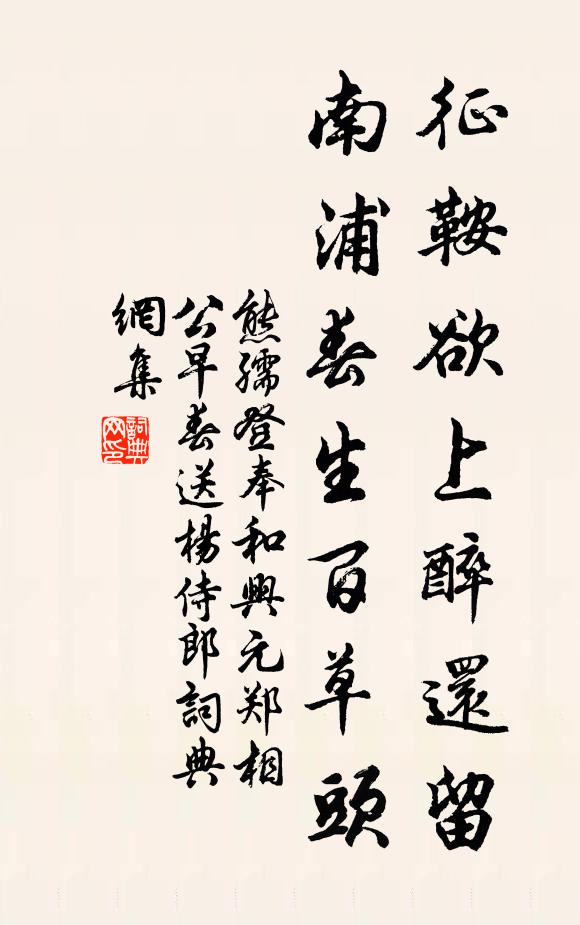 征鞍欲上醉還留
南浦春生百草頭
熊孺登奉和興元郑相
公早春送楊侍郎詞典
網集
詞典
网印